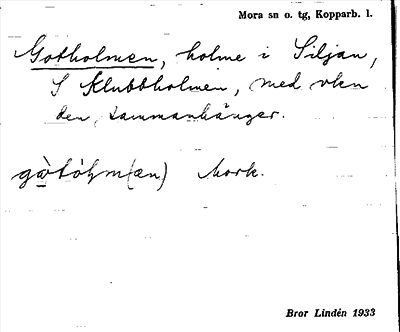 Mora sn o. tg, Kopparb. l.
Gotholmen, holme i Siljan,
S Klubbholmen, med vken
den sammanhänger.
Mork.
Bror Lindén 1933